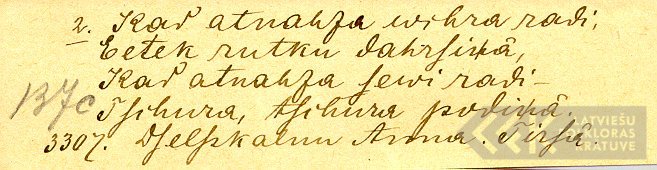 2. Kad atnahza wihra radi,
Eetek rutku dahrsiņâ,
Kad atnahza sewi radi –
Tschura, tschura podiņâ.
137c
3307. Dselskalnu Anna. Tirsâ.
LATVIEŠU
FOLKLORAS
KRĀTUVE